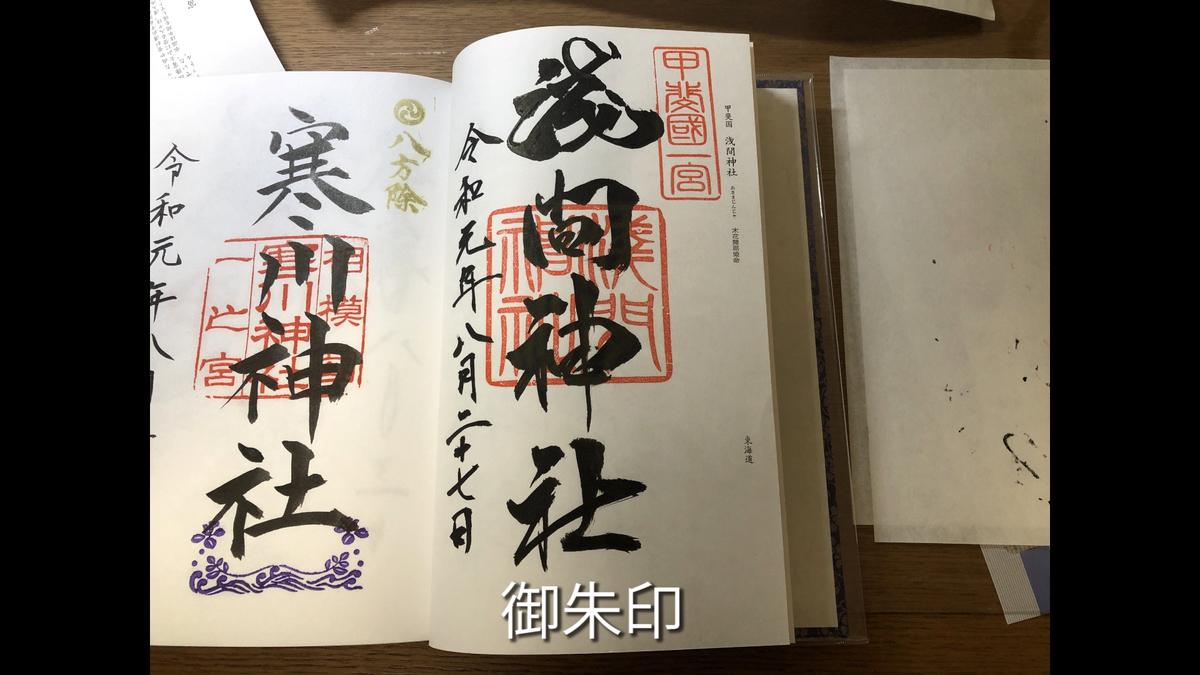 甲斐國一宮
甲斐国 浅間神社 あさまじんじゃ 木花開耶姫命
東海道
浅間神社
淺間神社
令和元年八月二十七日
八方除
寒川神社
相模國
寒川神社
一之宮
令和元年八月
御朱印